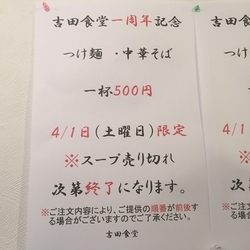 吉田食堂一周年記念
つけ麺 ・中華そば
一杯500円
4/1日(土曜日)限定
※スープ売り切れ
次第終了になります。
※ご注文内容により、ご提供の順番が前後す
る場合がございますのでご了承ください。
吉田食堂